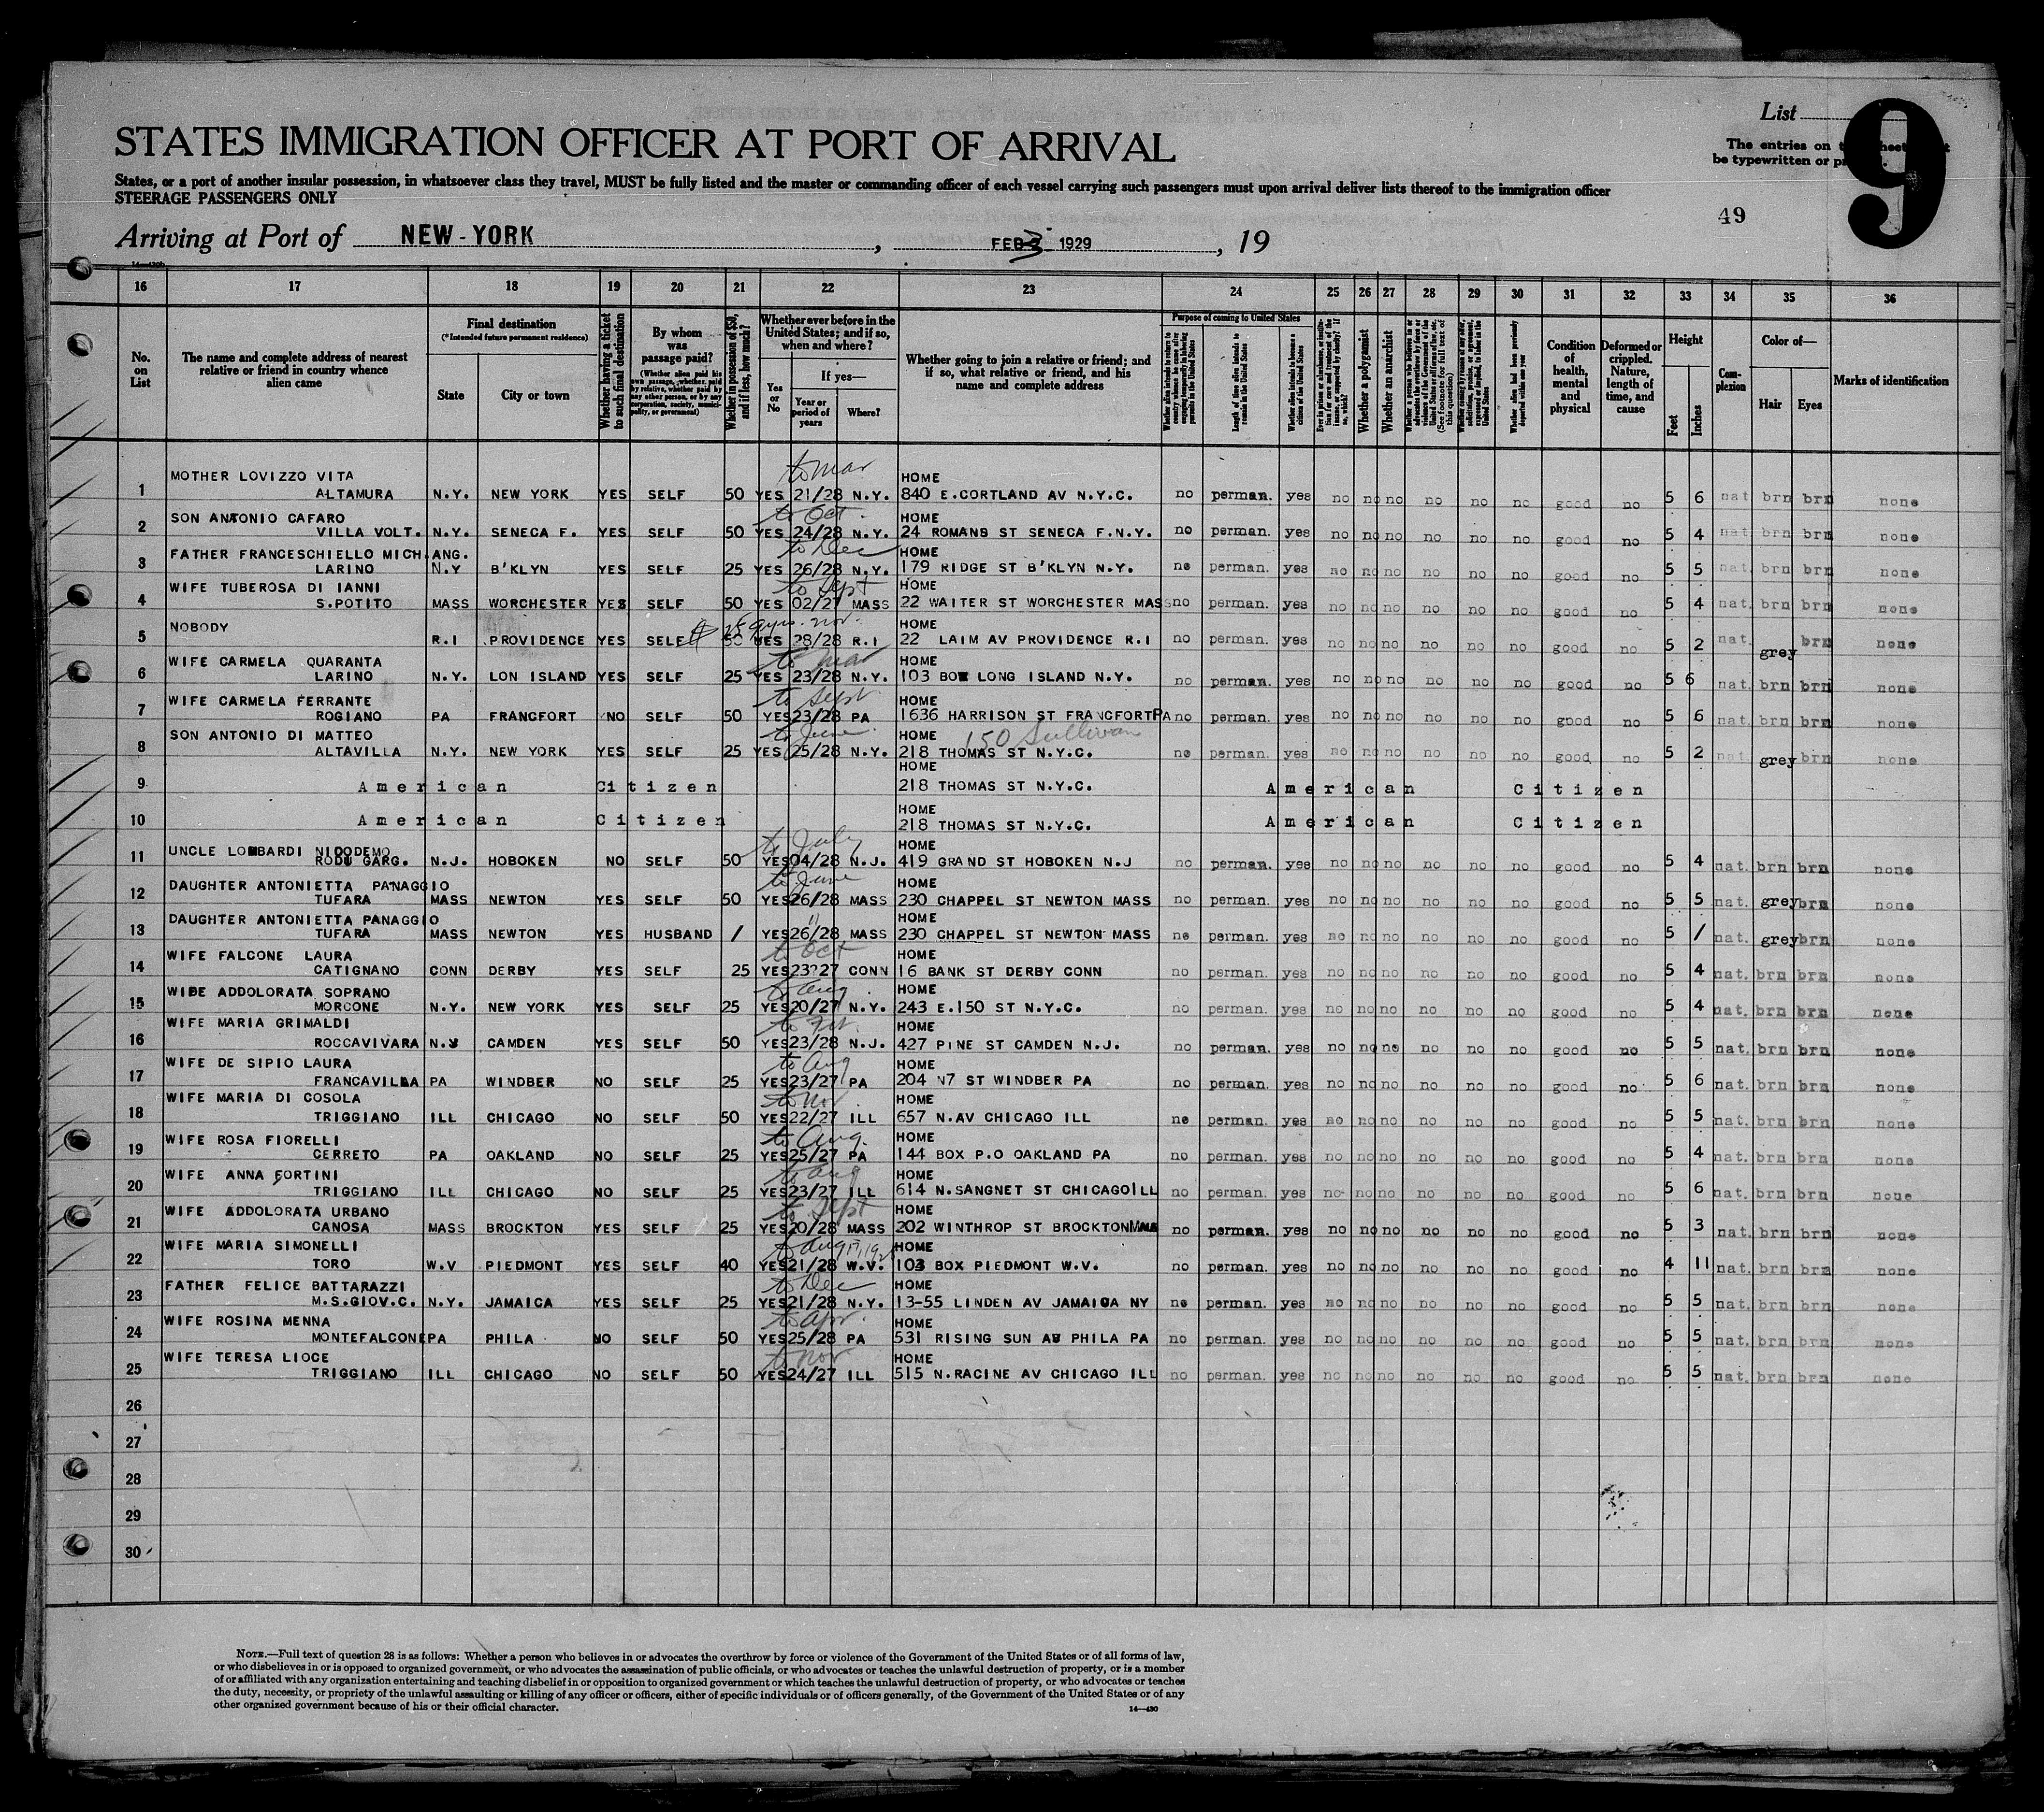 List
9
The entries on
be typewritten or
STATES IMMIGRATION OFFICER AT PORT OF ARRIVAL
States, or a port of another insular possession, in whatsoever class they travel, MUST be fully listed and the master or commanding officer of each vessel carrying such passengers must upon arrival deliver lists thereof to the immigration officer
STEERAGE PASSENGERS ONLY
49
Arriving at Port of NEW-YORK, FEB 3 1929, 19
14—430b
16 17 18 19 20 21 22 23 24 25 26 27 28 29 30 31 32 33 34 35 36
No. on List
The name and complete address of nearest relative or friend in country whence alien came
Final destination
(*Intended future permanent residence)
State
City or town
Whether having a ticket to such final destination
By whom was passage paid?
(Whether alien paid his own passage, whether paid by relative, whether paid by any other person, or by any corporation, society, municipality, or government)
Whether in possession of $50, and if less, how much?
Whether ever before in the United States; and if so, when and where?
Yes or No
If yes—
Year or period of years
Where?
Whether going to join a relative or friend; and if so, what relative or friend, and his name and complete address
Purpose of coming to United States
Length of time alien intends to remain in the United States
Whether alien intends to become a citizen of the United States
Whether a polygamist
Whether an anarchist
Condition of health, mental and physical
Deformed or crippled. Nature, length of time, and cause
Height
Feet
Inches
Complexion
Color of—
Hair
Eyes
Marks of identification
to mar
MOTHER LOVIZZO VITA HOME
1 ALTAMURA N.Y. NEW YORK YES SELF 50 YES 21/28 N.Y. 840 E.CORTLAND AV N.Y.C. no perman. yes no no no no no no good no 5 6 nat brn brn none
to Oct.
SON ANTONIO CAFARO HOME
2 VILLA VOLT. N.Y. SENECA F. YES SELF 50 YES 24/28 N.Y. 24 ROMANS ST SENECA F.N.Y. no perman. yes no no no no no no good no 5 4 nat. brn brn none
to Dec
FATHER FRANCESCHIELLO MICH.ANG. HOME
3 LARINO N.Y B'KLYN YES SELF 25 YES 26/28 N.Y. 179 RIDGE ST B'KLYN N.Y. no perman. yes no no no no no no good no 5 5 nat. brn brn none
to Sept
WIFE TUBEROSA DI IANNI HOME
4 S.POTITO MASS WORCHESTER YES SELF 50 YES 02/27 MASS 22 WAITER ST WORCHESTER MASS no perman. yes no no no no no no good no 5 4 nat. brn brn none
nov.
NOBODY HOME
5 R.I PROVIDENCE YES SELF 50 YES 28/28 R.I 22 LAIM AV PROVIDENCE R.I no perman. yes no no no no no no good no 5 2 nat. grey brn none
to mar
WIFE CARMELA QUARANTA HOME
6 LARINO N.Y. LON ISLAND YES SELF 25 YES 23/28 N.Y. 103 BOX LONG ISLAND N.Y. no perman. yes no no no no no no good no 5 6 nat. brn brn none
to Sept
WIFE CARMELA FERRANTE HOME
7 ROGIANO PA FRANCFORT NO SELF 50 YES 23/28 PA 1636 HARRISON ST FRANCFORT PA no perman. yes no no no no no no good no 5 6 nat. brn brn none
to June
SON ANTONIO DI MATTEO HOME 150 Sullivan
8 ALTAVILLA N.Y. NEW YORK YES SELF 25 YES 25/28 N.Y. 218 THOMAS ST N.Y.C. no perman. yes no no no no no no good no 5 2 nat. grey brn none
HOME
9 American Citizen 218 THOMAS ST N.Y.C. American Citizen
HOME
10 American Citizen 218 THOMAS ST N.Y.C. American Citizen
to July
UNCLE LOMBARDI NICODEMO HOME
11 RODU GARG. N.J. HOBOKEN NO SELF 50 YES 04/28 N.J. 419 GRAND ST HOBOKEN N.J no perman. yes no no no no no no good no 5 4 nat. brn brn none
to June
DAUGHTER ANTONIETTA PANAGGIO HOME
12 TUFARA MASS NEWTON YES SELF 50 YES 26/28 MASS 230 CHAPPEL ST NEWTON MASS no perman. yes no no no no no no good no 5 5 nat. grey brn none
"
DAUGHTER ANTONIETTA PANAGGIO HOME
13 TUFARA MASS NEWTON YES HUSBAND / YES 26/28 MASS 230 CHAPPEL ST NEWTON MASS no perman. yes no no no no no no good no 5 / nat. grey brn none
to Oct
WIFE FALCONE LAURA HOME
14 CATIGNANO CONN DERBY YES SELF 25 YES 23?27 CONN 16 BANK ST DERBY CONN no perman. yes no no no no no no good no 5 4 nat. brn brn none
to Aug.
WIDE ADDOLORATA SOPRANO HOME
15 MORCONE N.Y. NEW YORK YES SELF 25 YES 20/27 N.Y. 243 E.150 ST N.Y.C. no perman. yes no no no no no no good no 5 4 nat. brn brn none
WIFE MARIA GRIMALDI HOME
16 ROCCAVIVARA N.J CAMDEN YES SELF 50 YES 23/28 N.J. 427 PINE ST CAMDEN N.J. no perman. yes no no no no no no good no 5 5 nat. brn brn none
to Aug
WIFE DE SIPIO LAURA HOME
17 FRANCAVILLA PA WINDBER NO SELF 25 YES 23/27 PA 204 N7 ST WINDBER PA no perman. yes no no no no no no good no 5 6 nat. brn brn none
to nov.
WIFE MARIA DI COSOLA HOME
18 TRIGGIANO ILL CHICAGO NO SELF 50 YES 22/27 ILL 657 N.AV CHICAGO ILL no perman. yes no no no no no no good no 5 5 nat. brn brn none
to Aug.
WIFE ROSA FIORELLI HOME
19 CERRETO PA OAKLAND NO SELF 25 YES 25/27 PA 144 BOX P.O OAKLAND PA no perman. yes no no no no no no good no 5 4 nat. brn brn none
to aug
WIFE ANNA FORTINI HOME
20 TRIGGIANO ILL CHICAGO NO SELF 25 YES 23/27 ILL 614 N.SANGNET ST CHICAGO ILL no perman. yes no no no no no no good no 5 6 nat. brn brn none
to Sept
WIFE ADDOLORATA URBANO HOME
21 CANOSA MASS BROCKTON YES SELF 25 YES 20/28 MASS 202 WINTHROP ST BROCKTON MASS no perman. yes no no no no no no good no 5 3 nat. brn brn none
to aug
WIFE MARIA SIMONELLI HOME
22 TORO W.V PIEDMONT YES SELF 40 YES 21/28 W.V. 103 BOX PIEDMONT W.V. no perman. yes no no no no no no good no 4 11 nat. brn brn none
to Dec
FATHER FELICE BATTARAZZI HOME
23 M.S.GIOV.C. N.Y. JAMAICA YES SELF 25 YES 21/28 N.Y. 13-55 LINDEN AV JAMAICA NY no perman. yes no no no no no no good no 5 5 nat. brn brn none
to apr.
WIFE ROSINA MENNA HOME
24 MONTEFALCONE PA PHILA NO SELF 50 YES 25/28 PA 531 RISING SUN AV PHILA PA no perman. yes no no no no no no good no 5 5 nat. brn brn none
to nov
WIFE TERESA LIOCE HOME
25 TRIGGIANO ILL CHICAGO NO SELF 50 YES 24/27 ILL 515 N.RACINE AV CHICAGO ILL no perman. yes no no no no no no good no 5 5 nat. brn brn none
26
27
28
29
30
NOTE.—Full text of question 28 is as follows: Whether a person who believes in or advocates the overthrow by force or violence of the Government of the United States or of all forms of law,
or who disbelieves in or is opposed to organized government, or who advocates the assassination of public officials, or who advocates or teaches the unlawful destruction of property, or is a member
of or affiliated with any organization entertaining and teaching disbelief in or opposition to organized government or which teaches the unlawful destruction of property, or who advocates or teaches
the duty, necessity, or propriety of the unlawful assaulting or killing of any officer or officers, either of specific individuals or of officers generally, of the Government of the United States or of any
other organized government because of his or their official character.
14—430